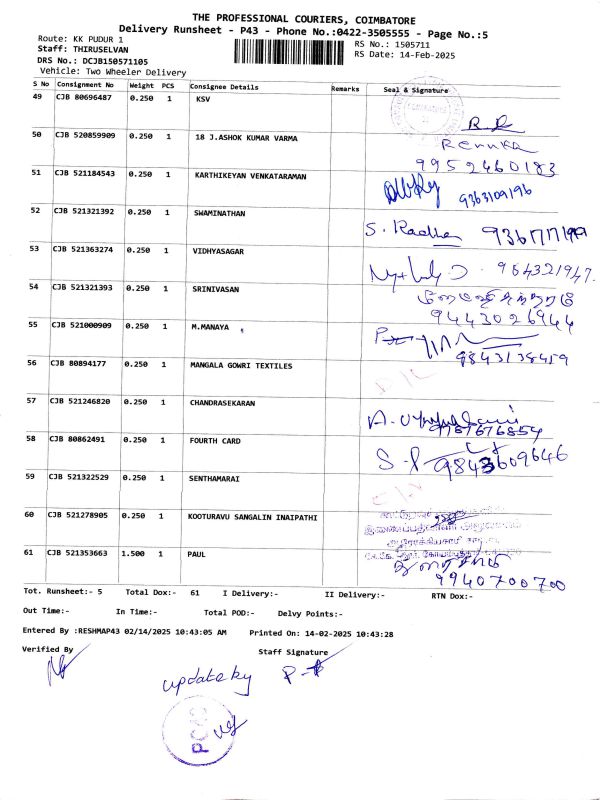 THE PROFESSIONAL COURIERS, COIMBATORE
Delivery Runsheet - P43 - Phone No.:0422-3505555 - Page No.:5
Route: KK PUDUR 1
RS No.: 1505711
Staff: THIRUSELVAN
RS Date: 14-Feb-2025
DRS No.: DCJB150571105
Vehicle: Two Wheeler Delivery
S No Consignment No Weight PCS Consignee Details Remarks Seal & Signature
49 CJB 80696487 0.250 1 KSV
50 CJB 520859909 0.250 1 18 J.ASHOK KUMAR VARMA Renuka
9952460183
51 CJB 521184543 0.250 1 KARTHIKEYAN VENKATARAMAN
9363109196
52 CJB 521321392 0.250 1 SWAMINATHAN
S. Radha
53 CJB 521363274 0.250 1 VIDHYASAGAR
964321947.
54 CJB 521321393 0.250 1 SRINIVASAN
9443026944
55 CJB 521000909 0.250 1 M.MANAYA
9843138459
56 CJB 80894177 0.250 1 MANGALA GOWRI TEXTILES
57 CJB 521246820 0.250 1 CHANDRASEKARAN
58 CJB 80862491 0.250 1 FOURTH CARD
9843609646
59 CJB 521322529 0.250 1 SENTHAMARAI
60 CJB 521278905 0.250 1 KOOTURAVU SANGALIN INAIPATHI
61 CJB 521353663 1.500 1 PAUL
துரைசாமி
9940700700
Tot. Runsheet:- 5 Total Dox:- 61 I Delivery:- II Delivery:- RTN Dox:-
Out Time:- In Time:- Total POD:- Delvy Points:-
Entered By :RESHMAP43 02/14/2025 10:43:05 AM Printed On: 14-02-2025 10:43:28
Verified By Staff Signature
update by